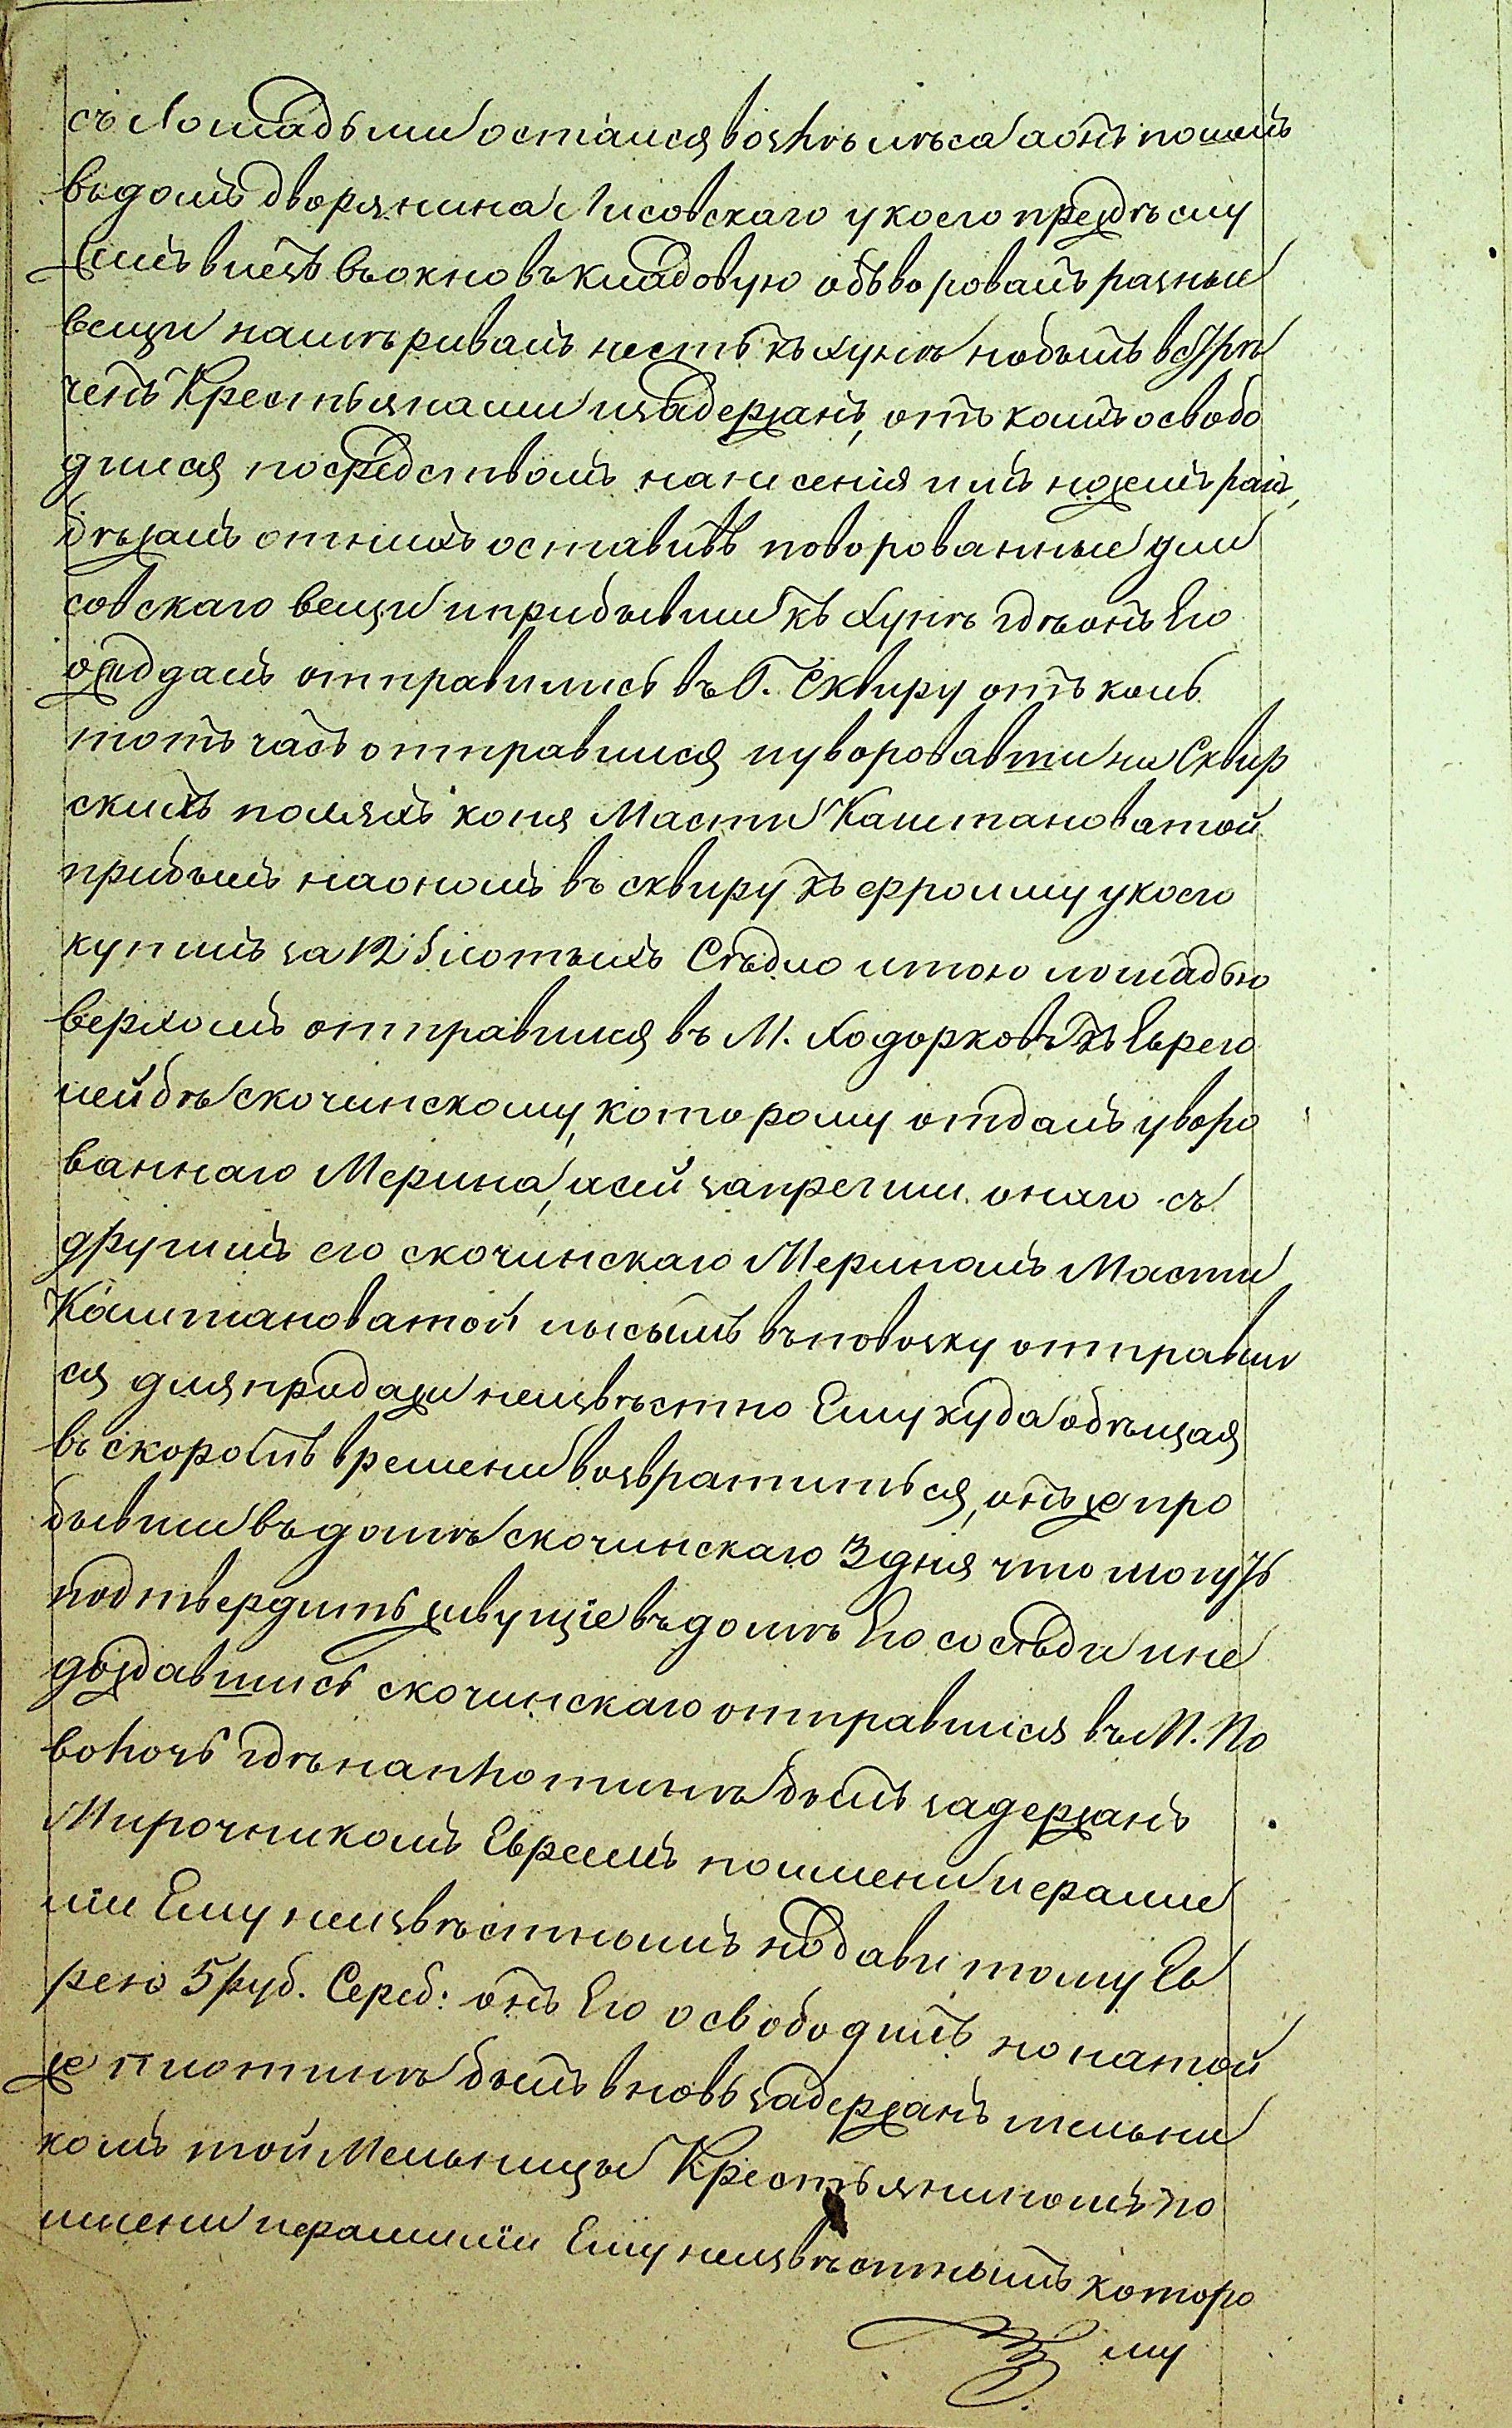 съ Лошадьми остался возлѣ лѣса а онъ пошелъ
въ домъ дворянина Лисовскаго у коего прежде слу
жилъ влезъ въ окно въ кладовую обворовалъ разные
вещи намѣривалъ несть къ Хунѣ но былъ встрѣ
ченъ Крестьянами и задержанъ, отъ коихъ освобо
дился посредствомъ нанесенія имъ ножемъ ранъ,
бѣжалъ отнихъ оставивъ поворованные у Ли
совскаго вещи и прибывши къ Хунѣ гдѣ онъ Его
ожидалъ отправились въ Г. Сквиру отъ коль
тотъ часъ отправился и уворовавши на Сквир
скихъ поляхъ коня Масти Каштановатой
прибылъ на ономъ въ сквиру къ ефроиму у коего
купилъ за 12 злотыхъ Сѣдло и тою лошадью
верхомъ отправился въ М. Ходорковъ къ Еврею
лейбѣ скочинскому, которому отдалъ уворо
ваннаго Мерина, а сей запрегши онаго съ
другимъ его скочинскаго Мериномъ Масти
Каштановатой лысымъ въ повозку отправил
ся для продажи неизвѣстно Ему куда обѣщая
въ скоромъ времени возвратиться, онъ же про
бывши въ домѣ скочинскаго 3 дня что могутъ
подтвердить живущіе въ домѣ Его сосѣди и не
дождавшись скочинскаго отправился въ М. По
волочь гдѣ на плотинѣ былъ задержанъ
Мирочникомъ Евреемъ по имени и фами
ліи Ему неизвѣстнымъ но давъ тому Ев
рею 5 руб. Сереб: онъ Его освободилъ но на той
же плотинѣ былъ вновь задержанъ мельни
комъ той Мельницы Крестьяниномъ по
имени и фамиліи Ему неизвѣстнымъ которо
му